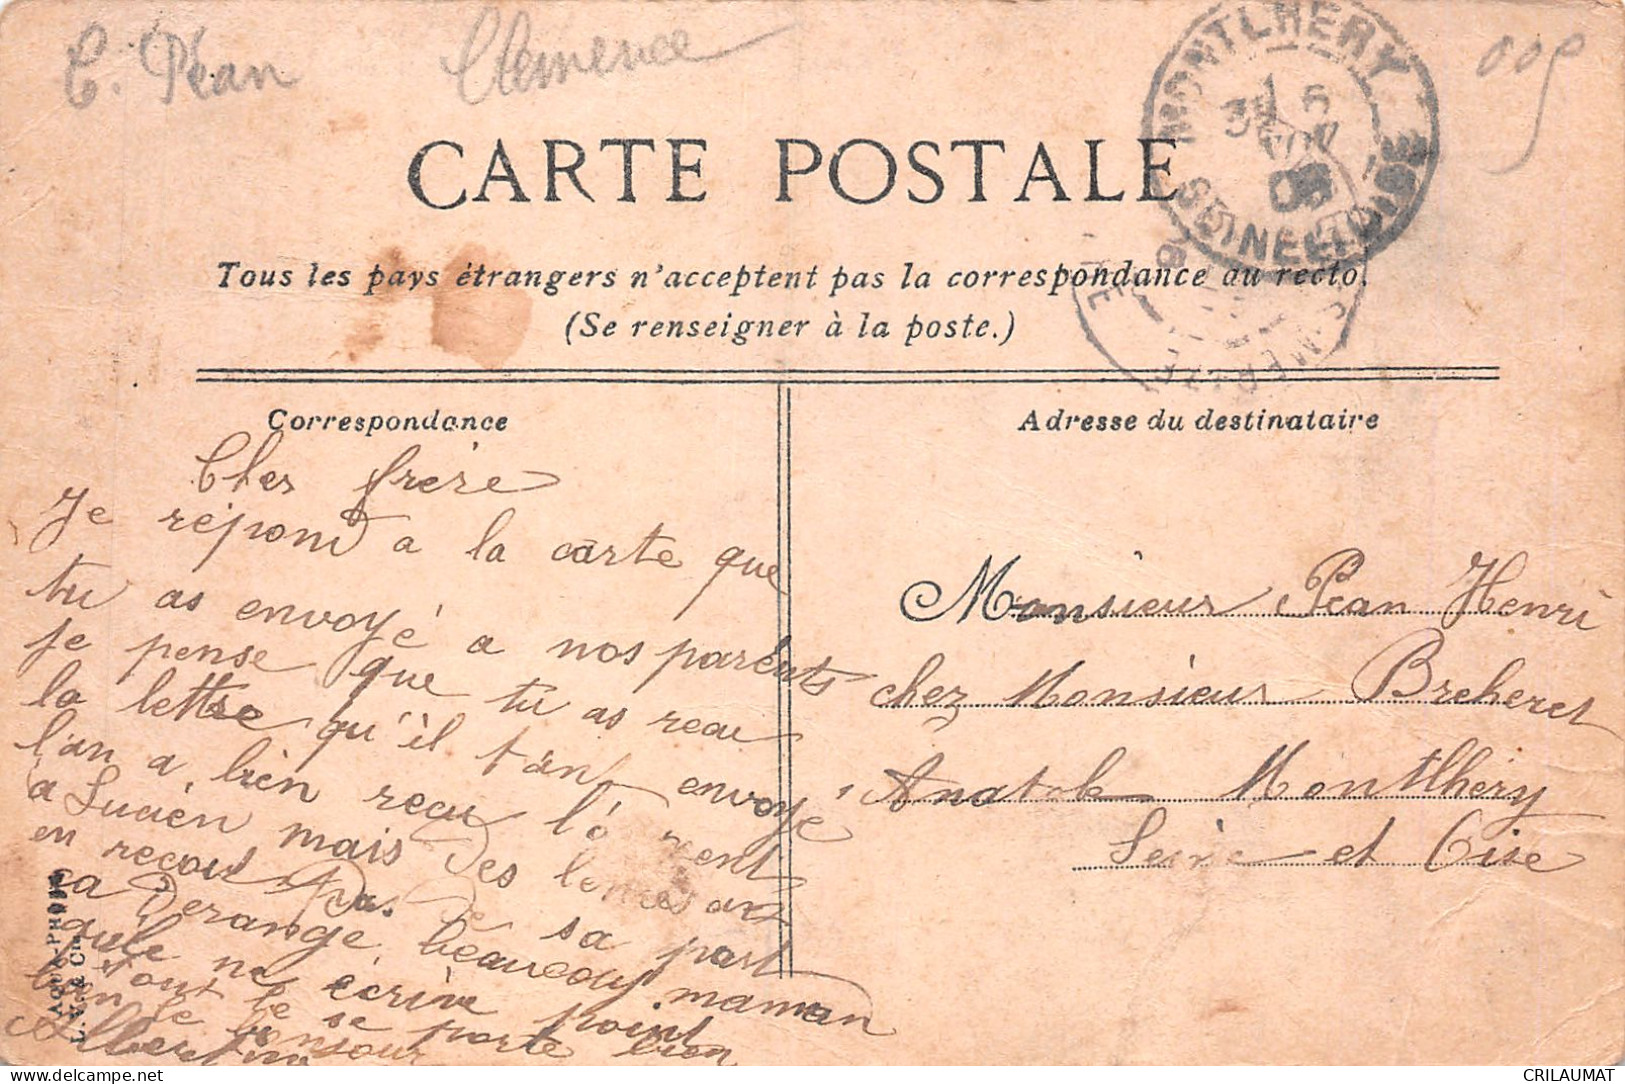 C. Péan
Clemence
009
MONTLHERY
SEINE-ET-OISE
CARTE POSTALE
Tous les pays étrangers n'acceptent pas la correspondance au recto.
(Se renseigner à la poste.)
Correspondance
Cher frère
Je répond a la carte que
tu as envoyé a nos parents
je pense que tu as recu
la lettre qu'il tant envoyé
l'an a bien recu l'
a Lucien mais des
en recoit pas. De sa part
ca derange beaucoup maman
ne écrive point
tout le se porte bien
bonjour
Albertine
AQUA-PHOTO
L. V. & Cie
Adresse du destinataire
Monsieur Péan Henri
chez Monsieur Breheret
Anatole Montlhery
Seine et Oise
CRILAUMAT